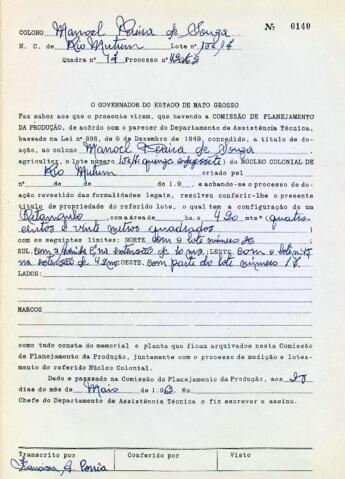 Nº 0140
COLONO Manoel Pereira de Souza
N. C. de Rio Mutum Lote nº 15e/17
Quadra nº 17 Processo nº
O GOVERNADOR DO ESTADO DE MATO GROSSO
Faz saber aos que o presente virem, que havendo a COMISSÃO DE PLANEJAMENTO
DA PRODUÇÃO, de acôrdo com o parecer do Departamento de Assistência Técnica,
baseada na Lei nº 336, de 6 de Dezembro de 1949, concedido, a título de do-
ação, ao colono Manoel Pereira de Souza
agricultor, o lote número 15e/17 (quinze e dezessete) do NÚCLEO COLONIAL DE
Rio Mutum criado pel
nº de de de 1.9 e achando-se o processo de do-
ação revestido das formalidades legais, resolveu conferir-lhe o presente
título de propriedade do referido lote, o qual tem a configuração de um
Retangulo com a área de ha. e 420 mts² (quatro
centos e vinte metros quadrados)
com os seguintes limites: NORTE com o lote número 20;
SUL, com a Avenida E, na extensão de 10 ms; LESTE, com o lote nº 15
na extensão de 42 ms; OESTE, com parte do lote número 18.
LADOS:
MARCOS
como tudo consta do memorial e planta que ficam arquivados nesta Comissão
de Planejamento da Produção, juntamente com o processo de medição e lotea-
mento do referido Núcleo Colonial.
Dado e passado na Comissão de Planejamento da Produção, aos
dias do mês de Maio de 1.963 Eu,
Chefe do Departamento de Assistência Técnica o fiz escrever e assino.
Transcrito por Conferido por Visto
Francisca A. Correia